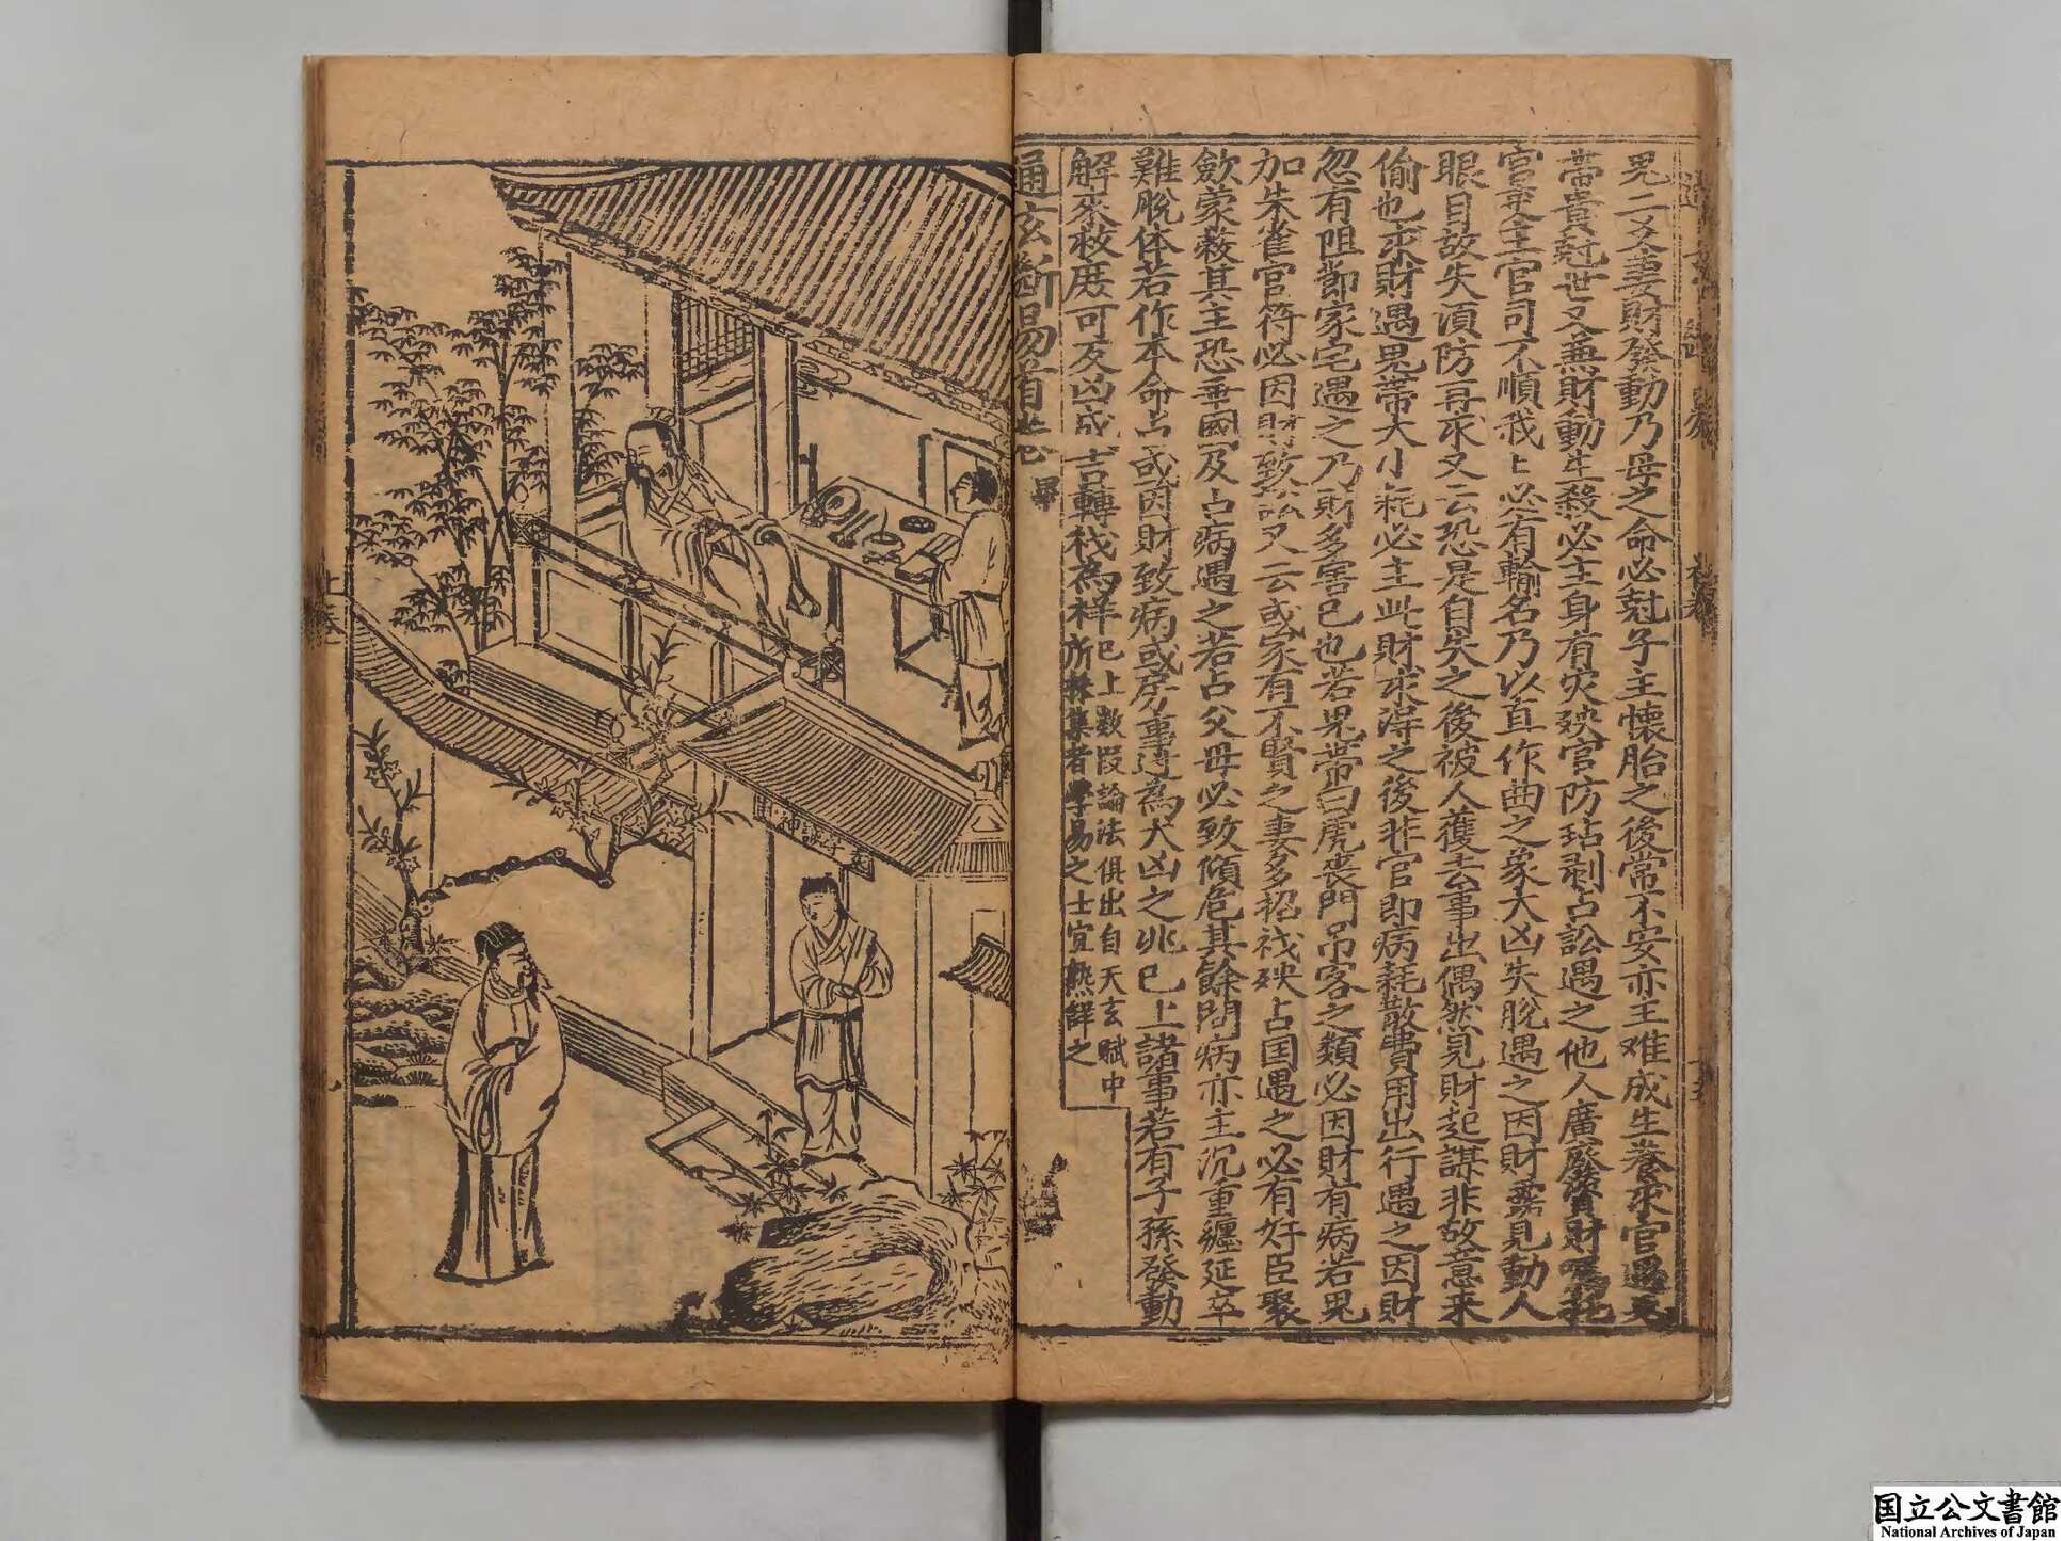 鬼二爻妻財發動乃母之命必尅子主懷胎之後常不安亦主难成生養求官遇
帶貴尅世又兼財動生殺必主身有灾殃官防玷剥占訟遇之他人廣廢
官主官司不順我上必有輸名乃以直作曲之象大凶失脫遇之因財見動人
眼目故失湏防再求又云恐是自失之後被人獲去事出偶然見財起謀非故意来
偷也求財遇鬼帶大小耗必主此財求淂之後非官即病耗散費用出行遇之因財
忽有阻節家宅遇之乃財多害己也若鬼帶白虎喪門吊客之類必因財有病若鬼
加朱雀官符必因財致訟又云或家有不賢之妻多招禍殃占国遇之必有奸臣聚
歛蒙蔽其主恐乖國及占病遇之若占父母必致傾危其餘問病亦主沉重纏延卒
難脫体若作本命占或因財致病或房事過為大凶之兆已上諸事若有子孫發動
解來救庶可反凶成吉轉禍為祥
已上数段論法俱出自天玄賦中
所集者學易之士宜熟詳之
通玄斷易首卷 畢
神
上卷
国立公文書館
National Archives of Japan